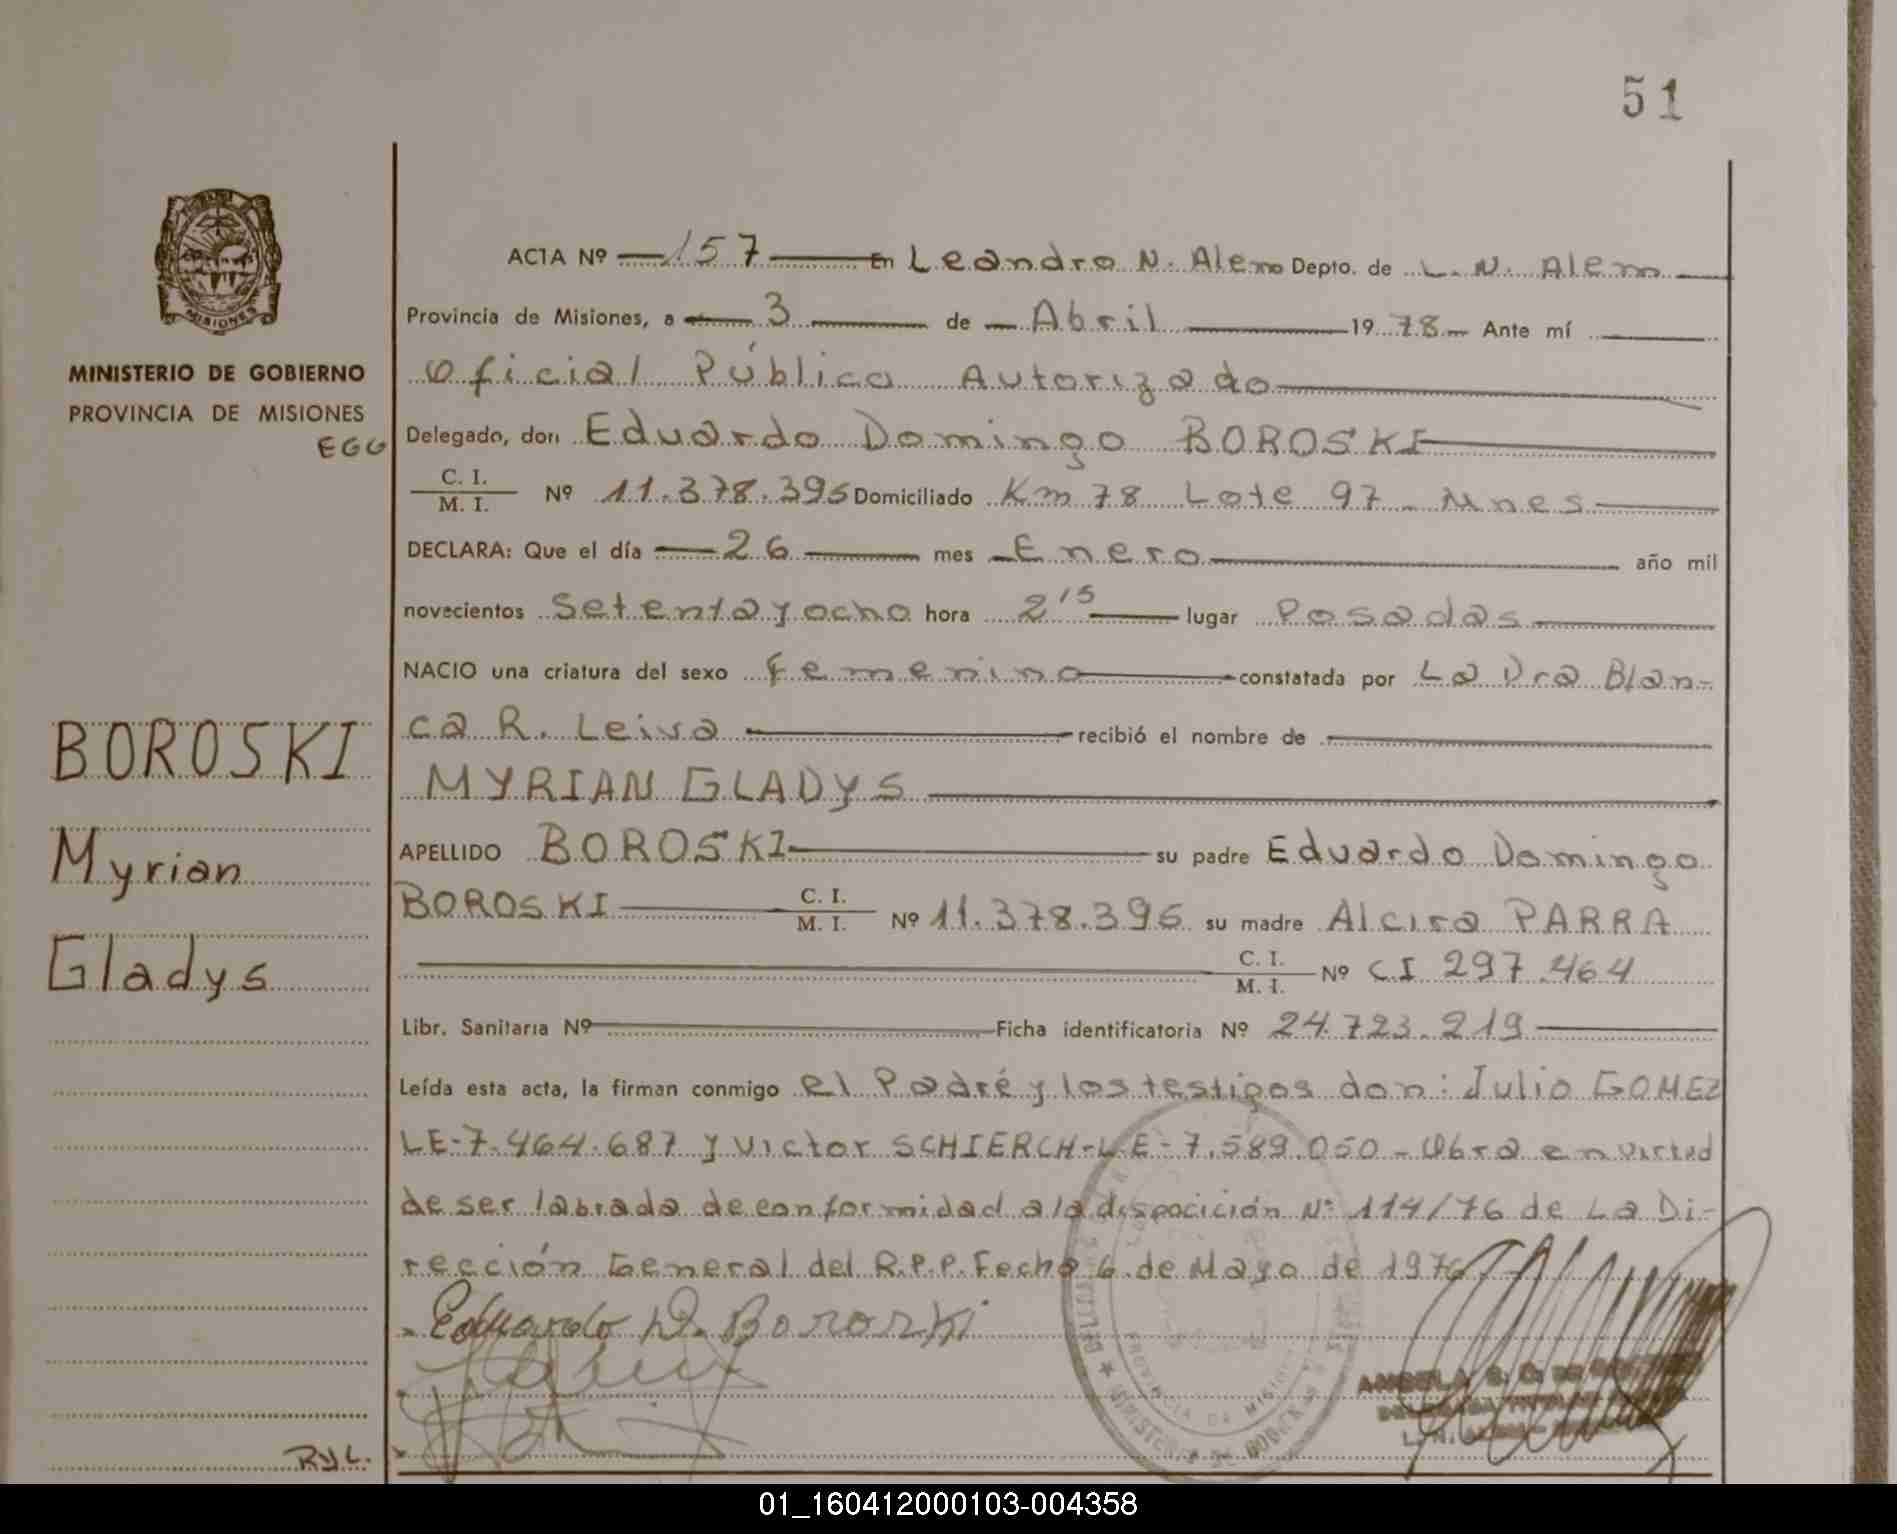 51
ACTA Nº 157 En Leandro N. Alem Depto. de L. N. Alem
Provincia de Misiones, a 3 de Abril 1978 Ante mí
MINISTERIO DE GOBIERNO
PROVINCIA DE MISIONES
EGG
Oficial Público Autorizado
Delegado, don Eduardo Domingo BOROSKI
C. I.
M. I. Nº 11.378.395 Domiciliado Km 78 Lote 97 - Mnes
DECLARA: Que el día 26 mes Enero año mil
novecientos Setenta y ocho hora 2 15 lugar Posadas
NACIO una criatura del sexo femenino constatada por La Dra Blan-
ca R. Leiva recibió el nombre de
MYRIAN GLADYS
APELLIDO BOROSKI su padre Eduardo Domingo
BOROSKI C. I.
M. I. Nº 11.378.395 su madre Alcira PARRA
C. I.
M. I. Nº C.I 297.464
Libr. Sanitaria Nº Ficha identificatoria Nº 24.723.219
Leída esta acta, la firman conmigo el Padré y los testigos don: Julio GOMEZ
LE-7.464.687 y Victor SCHIERCH-L.E-7.589.050 - Obra en virtud
de ser labrada de conformidad a la disposición Nº 114/76 de La Di-
rección General del R.P.P. Fecha 6 de Mayo de 1976
Eduardo D. Boroski
BOROSKI
Myrian
Gladys
RyL.
MISIONES
PROVINCIA DE MISIONES
MINISTERIO DE GOBIERNO
L. N. ALEM
01_160412000103-004358